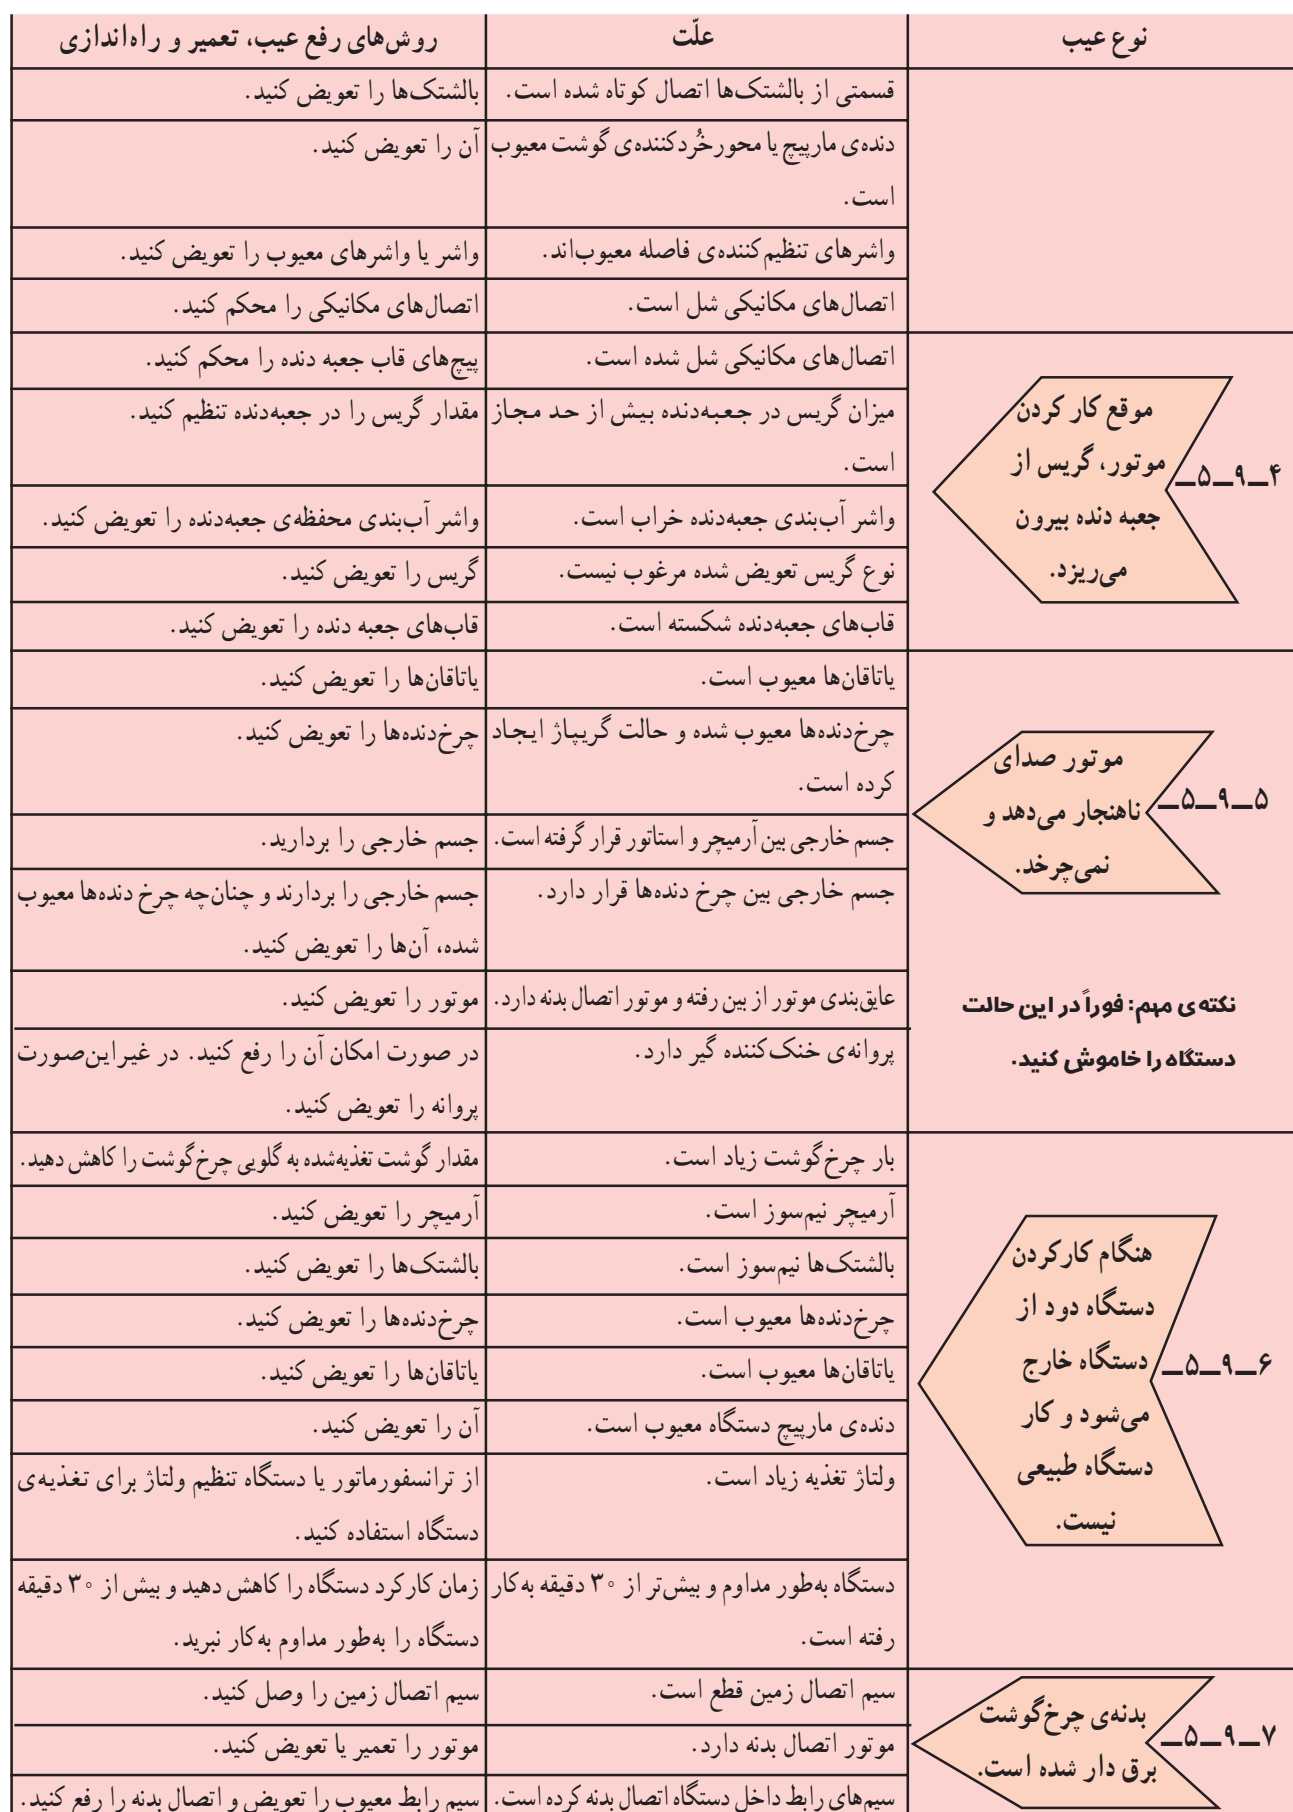 نوع عیب
علّت
روش‌های رفع عیب، تعمیر و راه‌اندازی
قسمتی از بالشتک‌ها اتصال کوتاه شده است.
بالشتک‌ها را تعویض کنید.
دنده‌ی مارپیچ یا محور خُردکننده‌ی گوشت معیوب
است.
آن را تعویض کنید.
واشرهای تنظیم‌کننده‌ی فاصله معیوب‌اند.
واشر یا واشرهای معیوب را تعویض کنید.
اتصال‌های مکانیکی شل است.
اتصال‌های مکانیکی را محکم کنید.
۴ــ۹ــ۵ــ
موقع کار کردن
موتور، گریس از
جعبه دنده بیرون
می‌ریزد.
اتصال‌های مکانیکی شل شده است.
پیچ‌های قاب جعبه دنده را محکم کنید.
میزان گریس در جعبه‌دنده بیش از حد مجاز
است.
مقدار گریس را در جعبه‌دنده تنظیم کنید.
واشر آب‌بندی جعبه‌دنده خراب است.
واشر آب‌بندی محفظه‌ی جعبه‌دنده را تعویض کنید.
نوع گریس تعویض شده مرغوب نیست.
گریس را تعویض کنید.
قاب‌های جعبه‌دنده شکسته است.
قاب‌های جعبه دنده را تعویض کنید.
۵ــ۹ــ۵ــ
موتور صدای
ناهنجار می‌دهد و
نمی‌چرخد.
نکته‌ی مهم: فوراً در این حالت
دستگاه را خاموش کنید.
یاتاقان‌ها معیوب است.
یاتاقان‌ها را تعویض کنید.
چرخ‌دنده‌ها معیوب شده و حالت گریپاژ ایجاد
کرده است.
چرخ‌دنده‌ها را تعویض کنید.
جسم خارجی بین آرمیچر و استاتور قرار گرفته است.
جسم خارجی را بردارید.
جسم خارجی بین چرخ دنده‌ها قرار دارد.
جسم خارجی را بردارند و چنان‌چه چرخ دنده‌ها معیوب
شده، آن‌ها را تعویض کنید.
عایق‌بندی موتور از بین رفته و موتور اتصال بدنه دارد.
موتور را تعویض کنید.
پروانه‌ی خنک‌کننده گیر دارد.
در صورت امکان آن را رفع کنید. در غیراین‌صورت
پروانه را تعویض کنید.
۶ــ۹ــ۵ــ
هنگام کارکردن
دستگاه دود از
دستگاه خارج
می‌شود و کار
دستگاه طبیعی
نیست.
بار چرخ‌گوشت زیاد است.
مقدار گوشت تغذیه‌شده به گلویی چرخ‌گوشت را کاهش دهید.
آرمیچر نیم‌سوز است.
آرمیچر را تعویض کنید.
بالشتک‌ها نیم‌سوز است.
بالشتک‌ها را تعویض کنید.
چرخ‌دنده‌ها معیوب است.
چرخ‌دنده‌ها را تعویض کنید.
یاتاقان‌ها معیوب است.
یاتاقان‌ها را تعویض کنید.
دنده‌ی مارپیچ دستگاه معیوب است.
آن را تعویض کنید.
ولتاژ تغذیه زیاد است.
از ترانسفورماتور یا دستگاه تنظیم ولتاژ برای تغذیه‌ی
دستگاه استفاده کنید.
دستگاه به‌طور مداوم و بیش‌تر از ۳۰ دقیقه به‌کار
رفته است.
زمان کارکرد دستگاه را کاهش دهید و بیش از ۳۰ دقیقه
دستگاه را به‌طور مداوم به‌کار نبرید.
۷ــ۹ــ۵ــ
بدنه‌ی چرخ‌گوشت
برق دار شده است.
سیم اتصال زمین قطع است.
سیم اتصال زمین را وصل کنید.
موتور اتصال بدنه دارد.
موتور را تعمیر یا تعویض کنید.
سیم‌های رابط داخل دستگاه اتصال بدنه کرده است.
سیم رابط معیوب را تعویض و اتصال بدنه را رفع کنید.